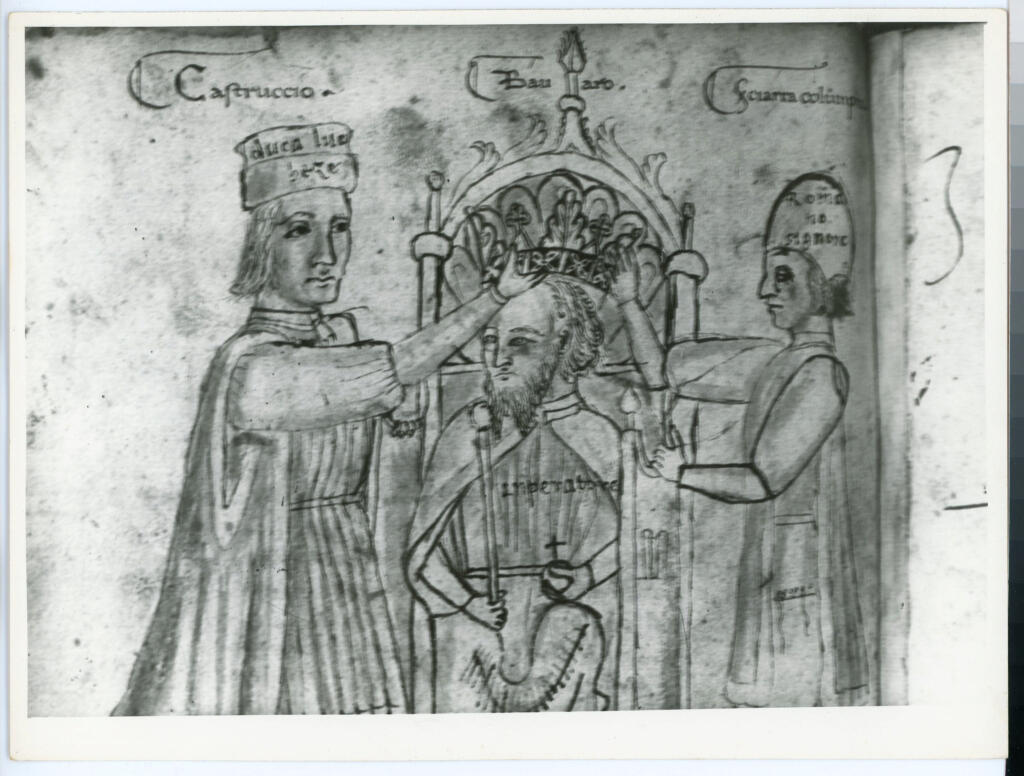 Castruccio.
Bau aro.
Sciarra colump
duca luc
hexe
Roma
no
signore
inperatore